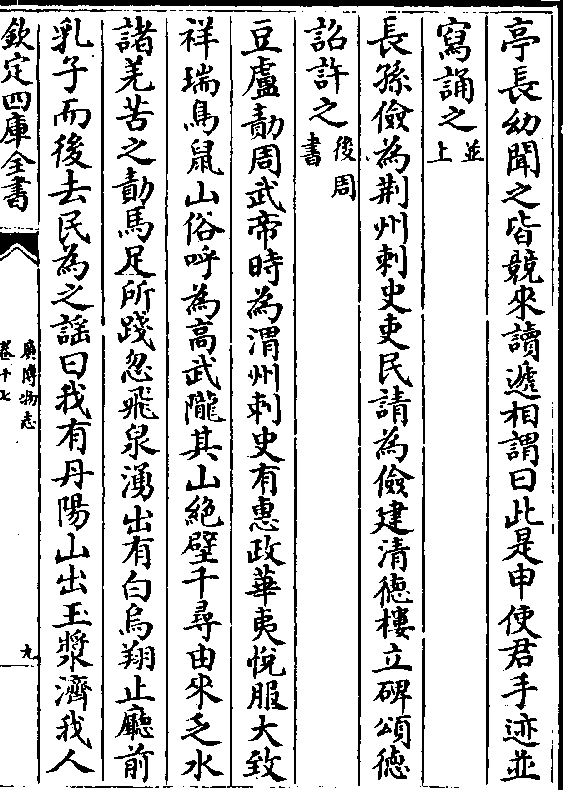 亭長幼聞之皆競來讀遞相謂曰此是申使君手迹並
寫誦之並上
長孫儉為荆州刺史吏民請為儉建清德樓立碑頌德
詔許之後周書
豆盧勣周武帝時為渭州刺史有惠政華夷悅服大致
祥瑞鳥鼠山俗呼為高武隴其山絕壁千尋由來乏水
諸羌苦之勣馬足所踐忽飛泉湧出有白烏翔止廳前
乳子而後去民為之謡曰我有丹陽山出玉漿濟我人
欽定四庫全書
廣博物志
卷十七
九